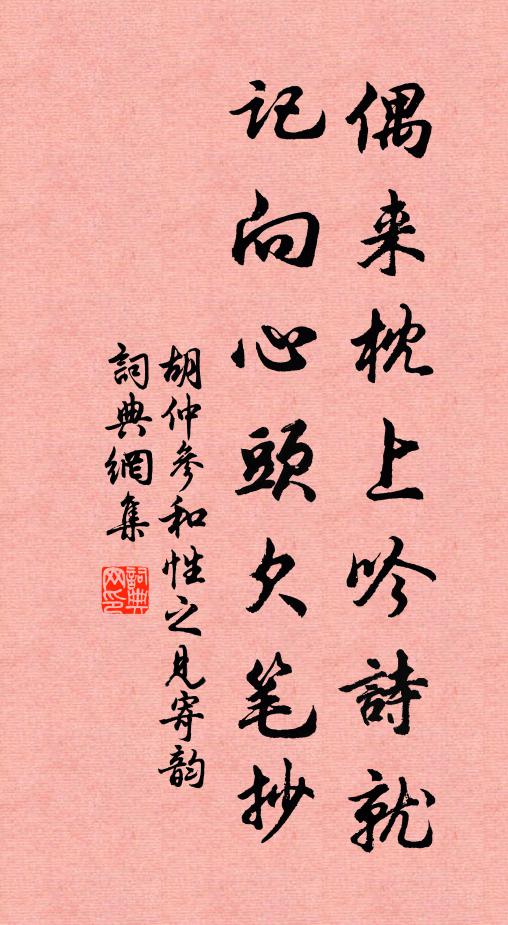 偶来枕上吟詩就
記向心頭欠笔抄
胡仲參和性之見寄韵
詞典網集
詞典网印